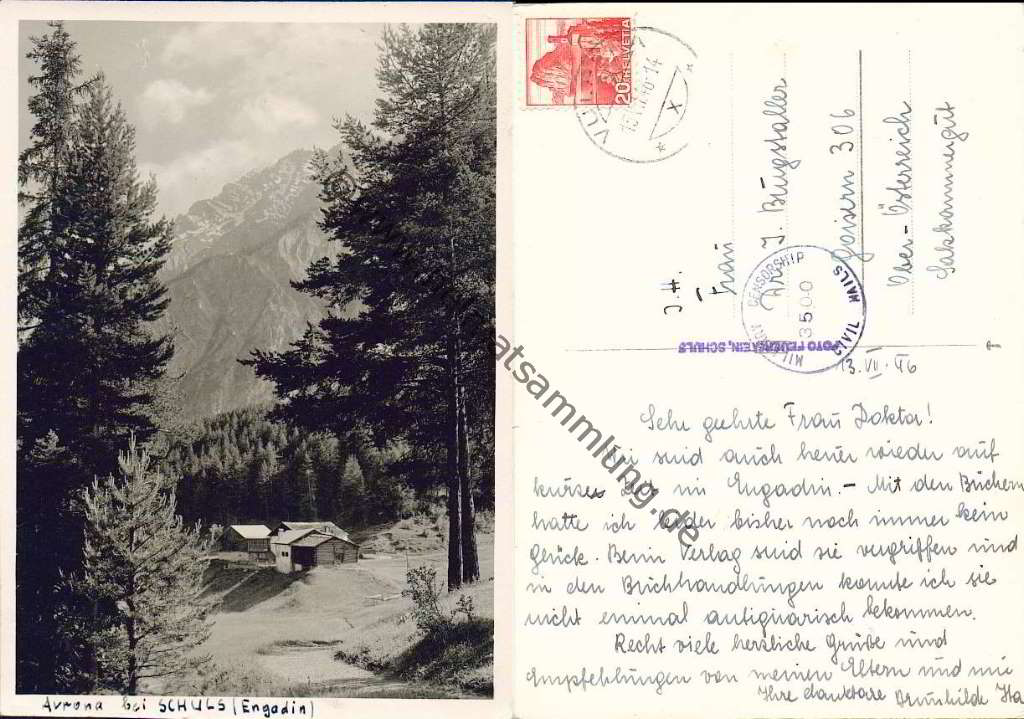 Avrona bei SCHULS (Engadin)
HELVETIA
20
VU
X
MILITARY CENSORSHIP
3500
CIVIL MAILS
J.H.
Frau
J. Burgstaller
Goisern 306
Ober-Österreich
Salzkammergut
FOTO FEUERSTEIN, SCHULS
13. VII. 46
Sehr geehrte Frau Doktor!
Wir sind auch heuer wieder auf
kurze Zeit im Engadin. – Mit den Büchern
hatte ich leider bisher noch immer kein
Glück. Beim Verlag sind sie vergriffen und
in den Buchhandlungen konnte ich sie
nicht einmal antiquarisch bekommen.
Recht viele herzliche Grüße und
Empfehlungen von meinen Eltern und mir
Ihre dankbare Brunhilde
atsammlung.de